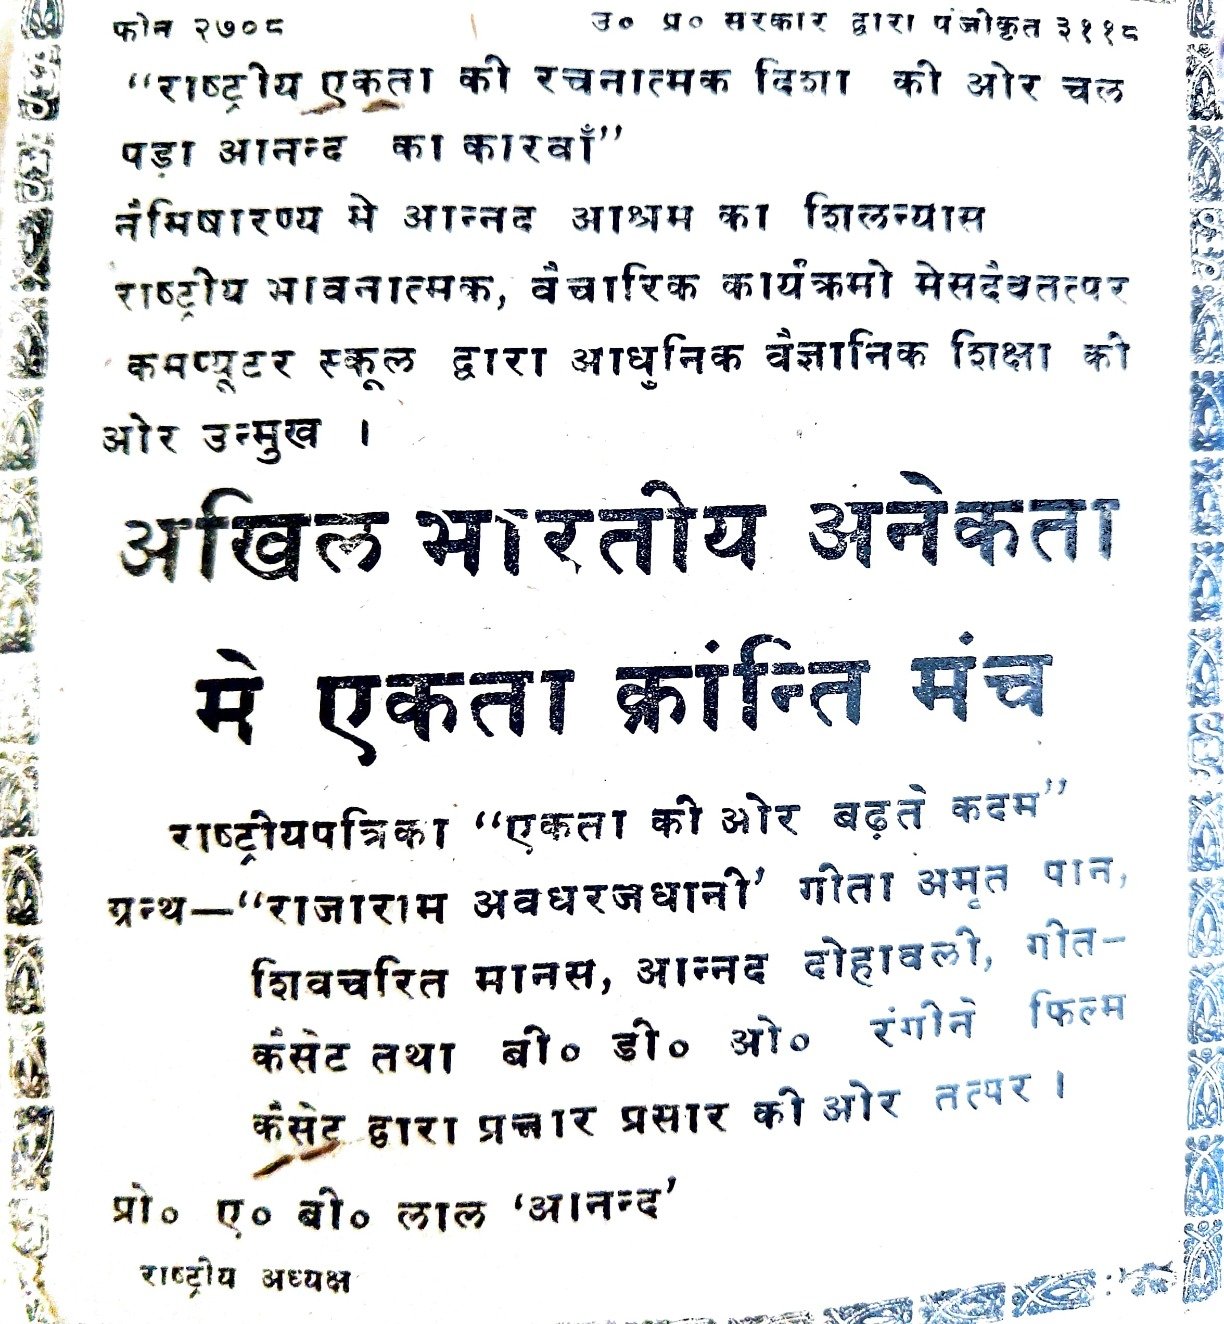 फोन २७०८ उ० प्र० सरकार द्वारा पंजीकृत ३११८
“राष्ट्रीय एकता की रचनात्मक दिशा की ओर चल
पड़ा आनन्द का कारवाँ”
नैमिषारण्य मे आन्नद आश्रम का शिलन्यास
राष्ट्रीय भावनात्मक, वैचारिक कार्यक्रमो मेसदैवतत्पर
कमप्यूटर स्कूल द्वारा आधुनिक वैज्ञानिक शिक्षा की
ओर उन्मुख ।
अखिल भारतीय अनेकता
मे एकता क्रांन्ति मंच
राष्ट्रीयपत्रिका “एकता की ओर बढ़ते कदम”
ग्रन्थ—“राजाराम अवधरजधानी’ गीता अमृत पान,
शिवचरित मानस, आन्नद दोहावली, गीत–
कैसेट तथा बी० डी० ओ० रंगीने फिल्म
कैसेट द्वारा प्रचार प्रसार की ओर तत्पर ।
प्रो० ए० बी० लाल ‘आनन्द’
राष्ट्रीय अध्यक्ष